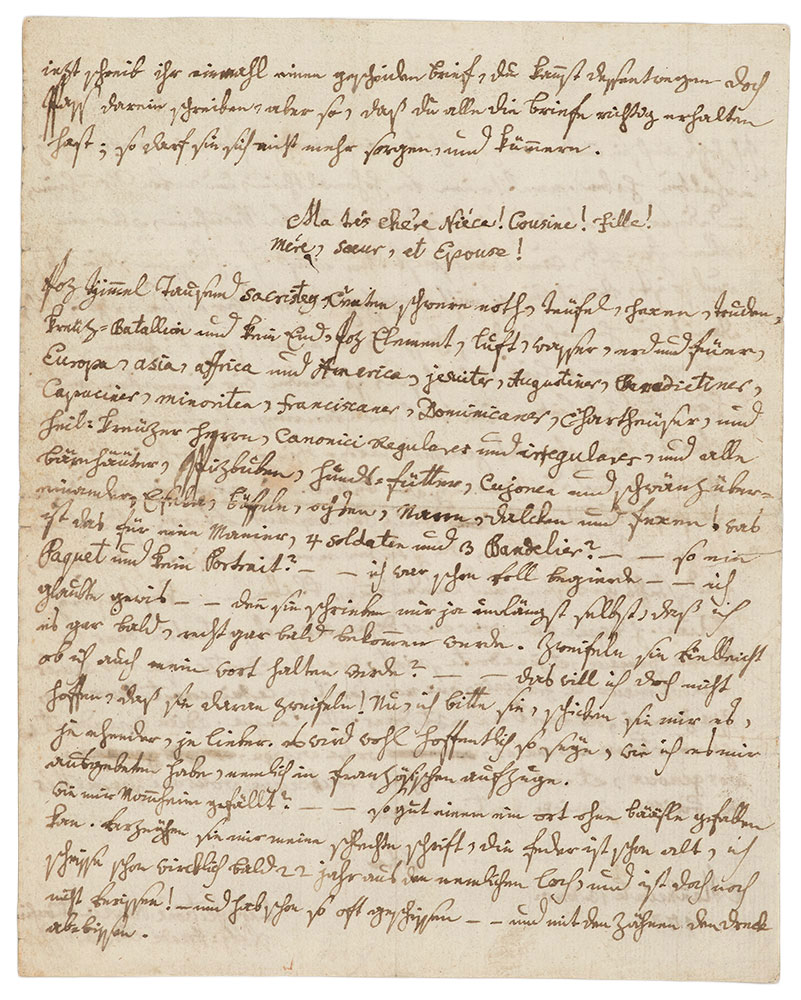 iezt schreib ihr einmahl einen gescheiden brief, du kannst dessentwegen doch
spass darein schreiben, aber so, daß du alle die briefe richtig erhalten
hast; so darf sie sich nicht mehr sorgen, und kümmern.
Ma très chère Niéce! Cousine! fille!
Mére, sœur, et Epouse!
Poz Himmel Tausend sacristey, Croaten schwere noth, teüfel, hexen, truden,
kreütz-Batallion und kein End, Poz Element, luft, wasser, erd und feüer,
Europa, asia, affrica und America, jesuiter, Augustiner, Benedictiner,
Capuciner, minoriten, franciscaner, Dominicaner, Chartheüser, und
heil: kreützer herrn, Canonici Regulares und iregulares, und alle
bärnhäuter, spizbuben, hundsfütter, Cujonen und schwänz über-
einander, Eseln, büffeln, ochsen, Narrn, dalcken und fexen! was
ist das für eine Manier, 4 soldaten und 3 Bandelier? – – so ein
Paquet und kein Portrait? – – ich war schon voll begierde – – ich
glaubte gewis – – denn sie schrieben mir ja unlängst selbst, daß ich
es gar bald, recht gar bald bekommen werde. Zweifeln sie vielleicht
ob ich auch mein wort halten werde? – – das will ich doch nicht
hoffen, daß sie daran zweifeln! Nu, ich bitte sie, schicken sie mir es,
je ehender, je lieber. es wird wohl hoffentlich so seyn, wie ich es mir
ausgebeten habe, nemlich in französischen aufzuge.
wie mir Mannheim gefällt? – – so gut einem ein ort ohne bääsle gefallen
kan. Verzeyhen sie mir meine schlechte schrift, die feder ist schon alt, ich
scheisse schon wircklich bald 22 jahr aus den nemlichen loch, und ist doch noch
nicht verissen! – und hab schon so oft geschissen – – und mit den Zähnen den dreck
ab-bissen.